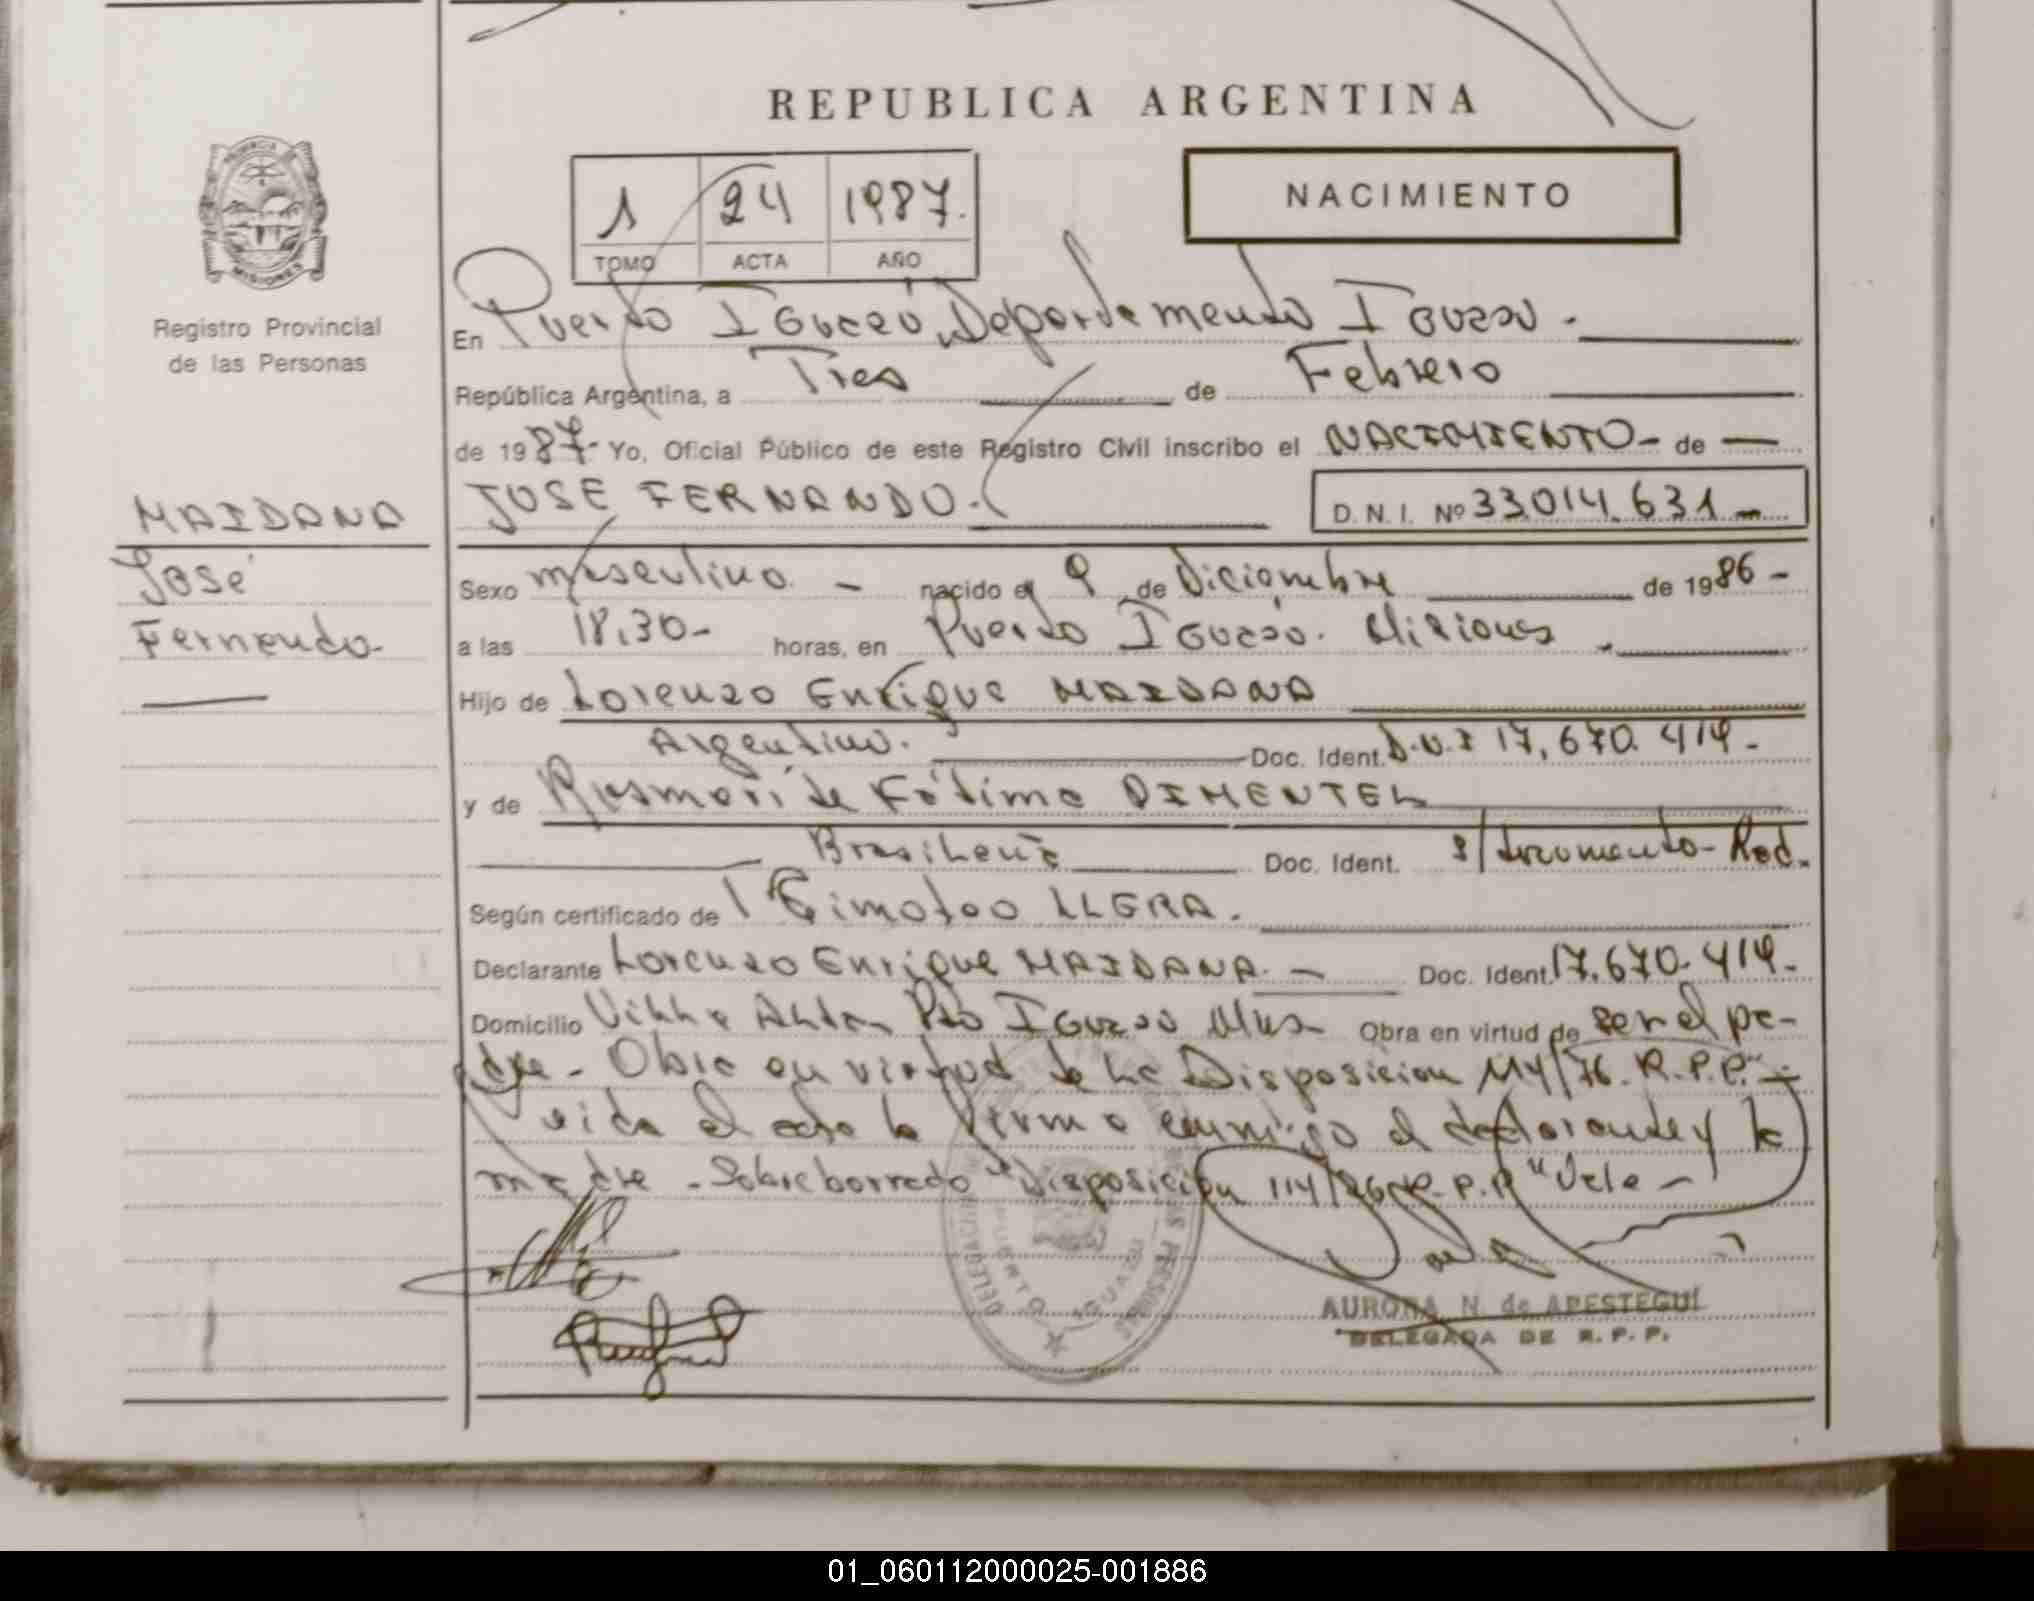 REPUBLICA ARGENTINA
PROVINCIA
MISIONES
Registro Provincial
de las Personas
1 24 1987.
TOMO ACTA AÑO
NACIMIENTO
En Puerto Iguazú, Departamento Iguazú.
República Argentina, a Tres de Febrero
de 1987- Yo, Oficial Público de este Registro Civil inscribo el NACIMIENTO- de
MAIDANA
José
Fernando-
JOSE FERNANDO.
D.N.I. Nº 33.014.631-
Sexo masculino. - nacido el 9 de Diciembre de 1986-
a las 18,30- horas, en Puerto Iguazú. Misiones.
Hijo de Lorenzo Enrique MAIDANA
Argentino. Doc. Ident. D.N.I 17,670.414-
y de Rosmari de Fátima PIMENTEL
Brasileña Doc. Ident. s/documento- Rad.
Según certificado de Timoteo LLERA.
Declarante Lorenzo Enrique MAIDANA. - Doc. Ident. 17.670.414-
Domicilio Villa Alta Pto Iguazú Mnes- Obra en virtud de ser el pa-
dre- Obra en virtud de la Disposicion 114/76. R.P.P.-
el acta la firma conmigo el declarante y la
madre - Sobreborrado "Disposición 114/76 R.P.P" Vale-
DELEGACION PUERTO IGUAZU
AURORA N. de APESTEGUI
DELEGADA DE R.P.P.
01_060112000025-001886